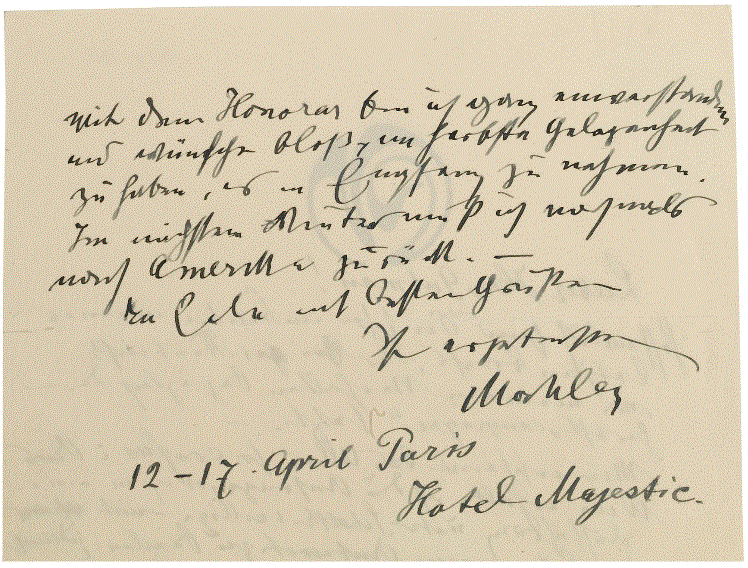 mit dem Honorar bin ich ganz einverstanden
und wünsche bloß, im Herbste Gelegenheit
zu haben, es in Empfang zu nehmen.
Im nächsten Winter muß ich nochmals
nach Amerika zurück. —
In Eile mit besten Grüßen
Ihr ergebenster
12–17. April Paris
Hotel Majestic.